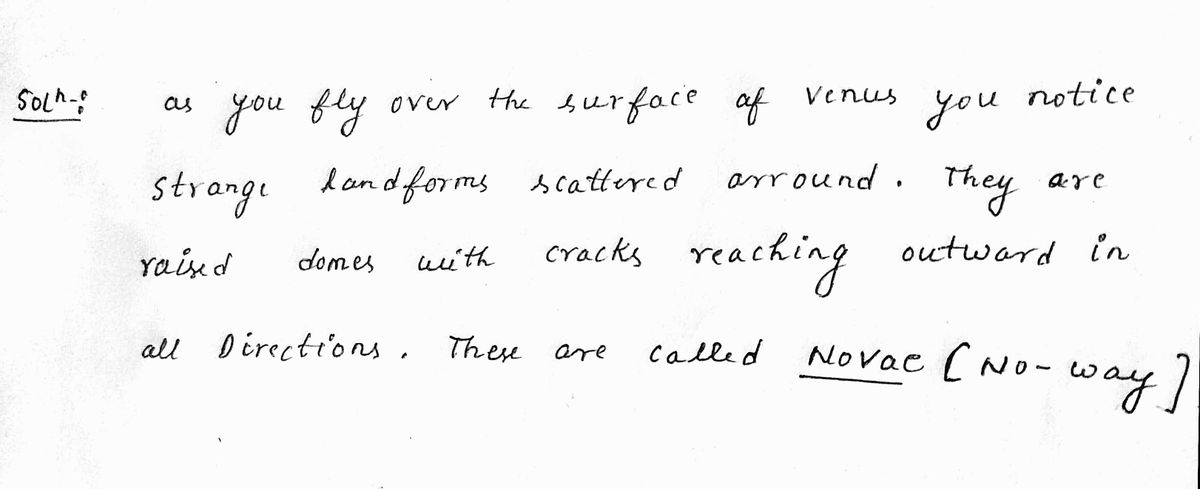 Solⁿ-: as you fly over the surface of venus you notice
strange landforms scattered arround. They are
raised domes with cracks reaching outward in
all Directions. These are called Novae [No-way]